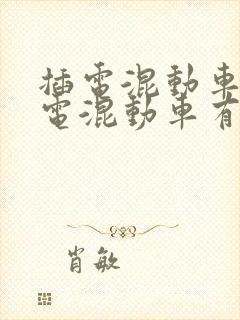 插電混動車
電混動車有
肖敏